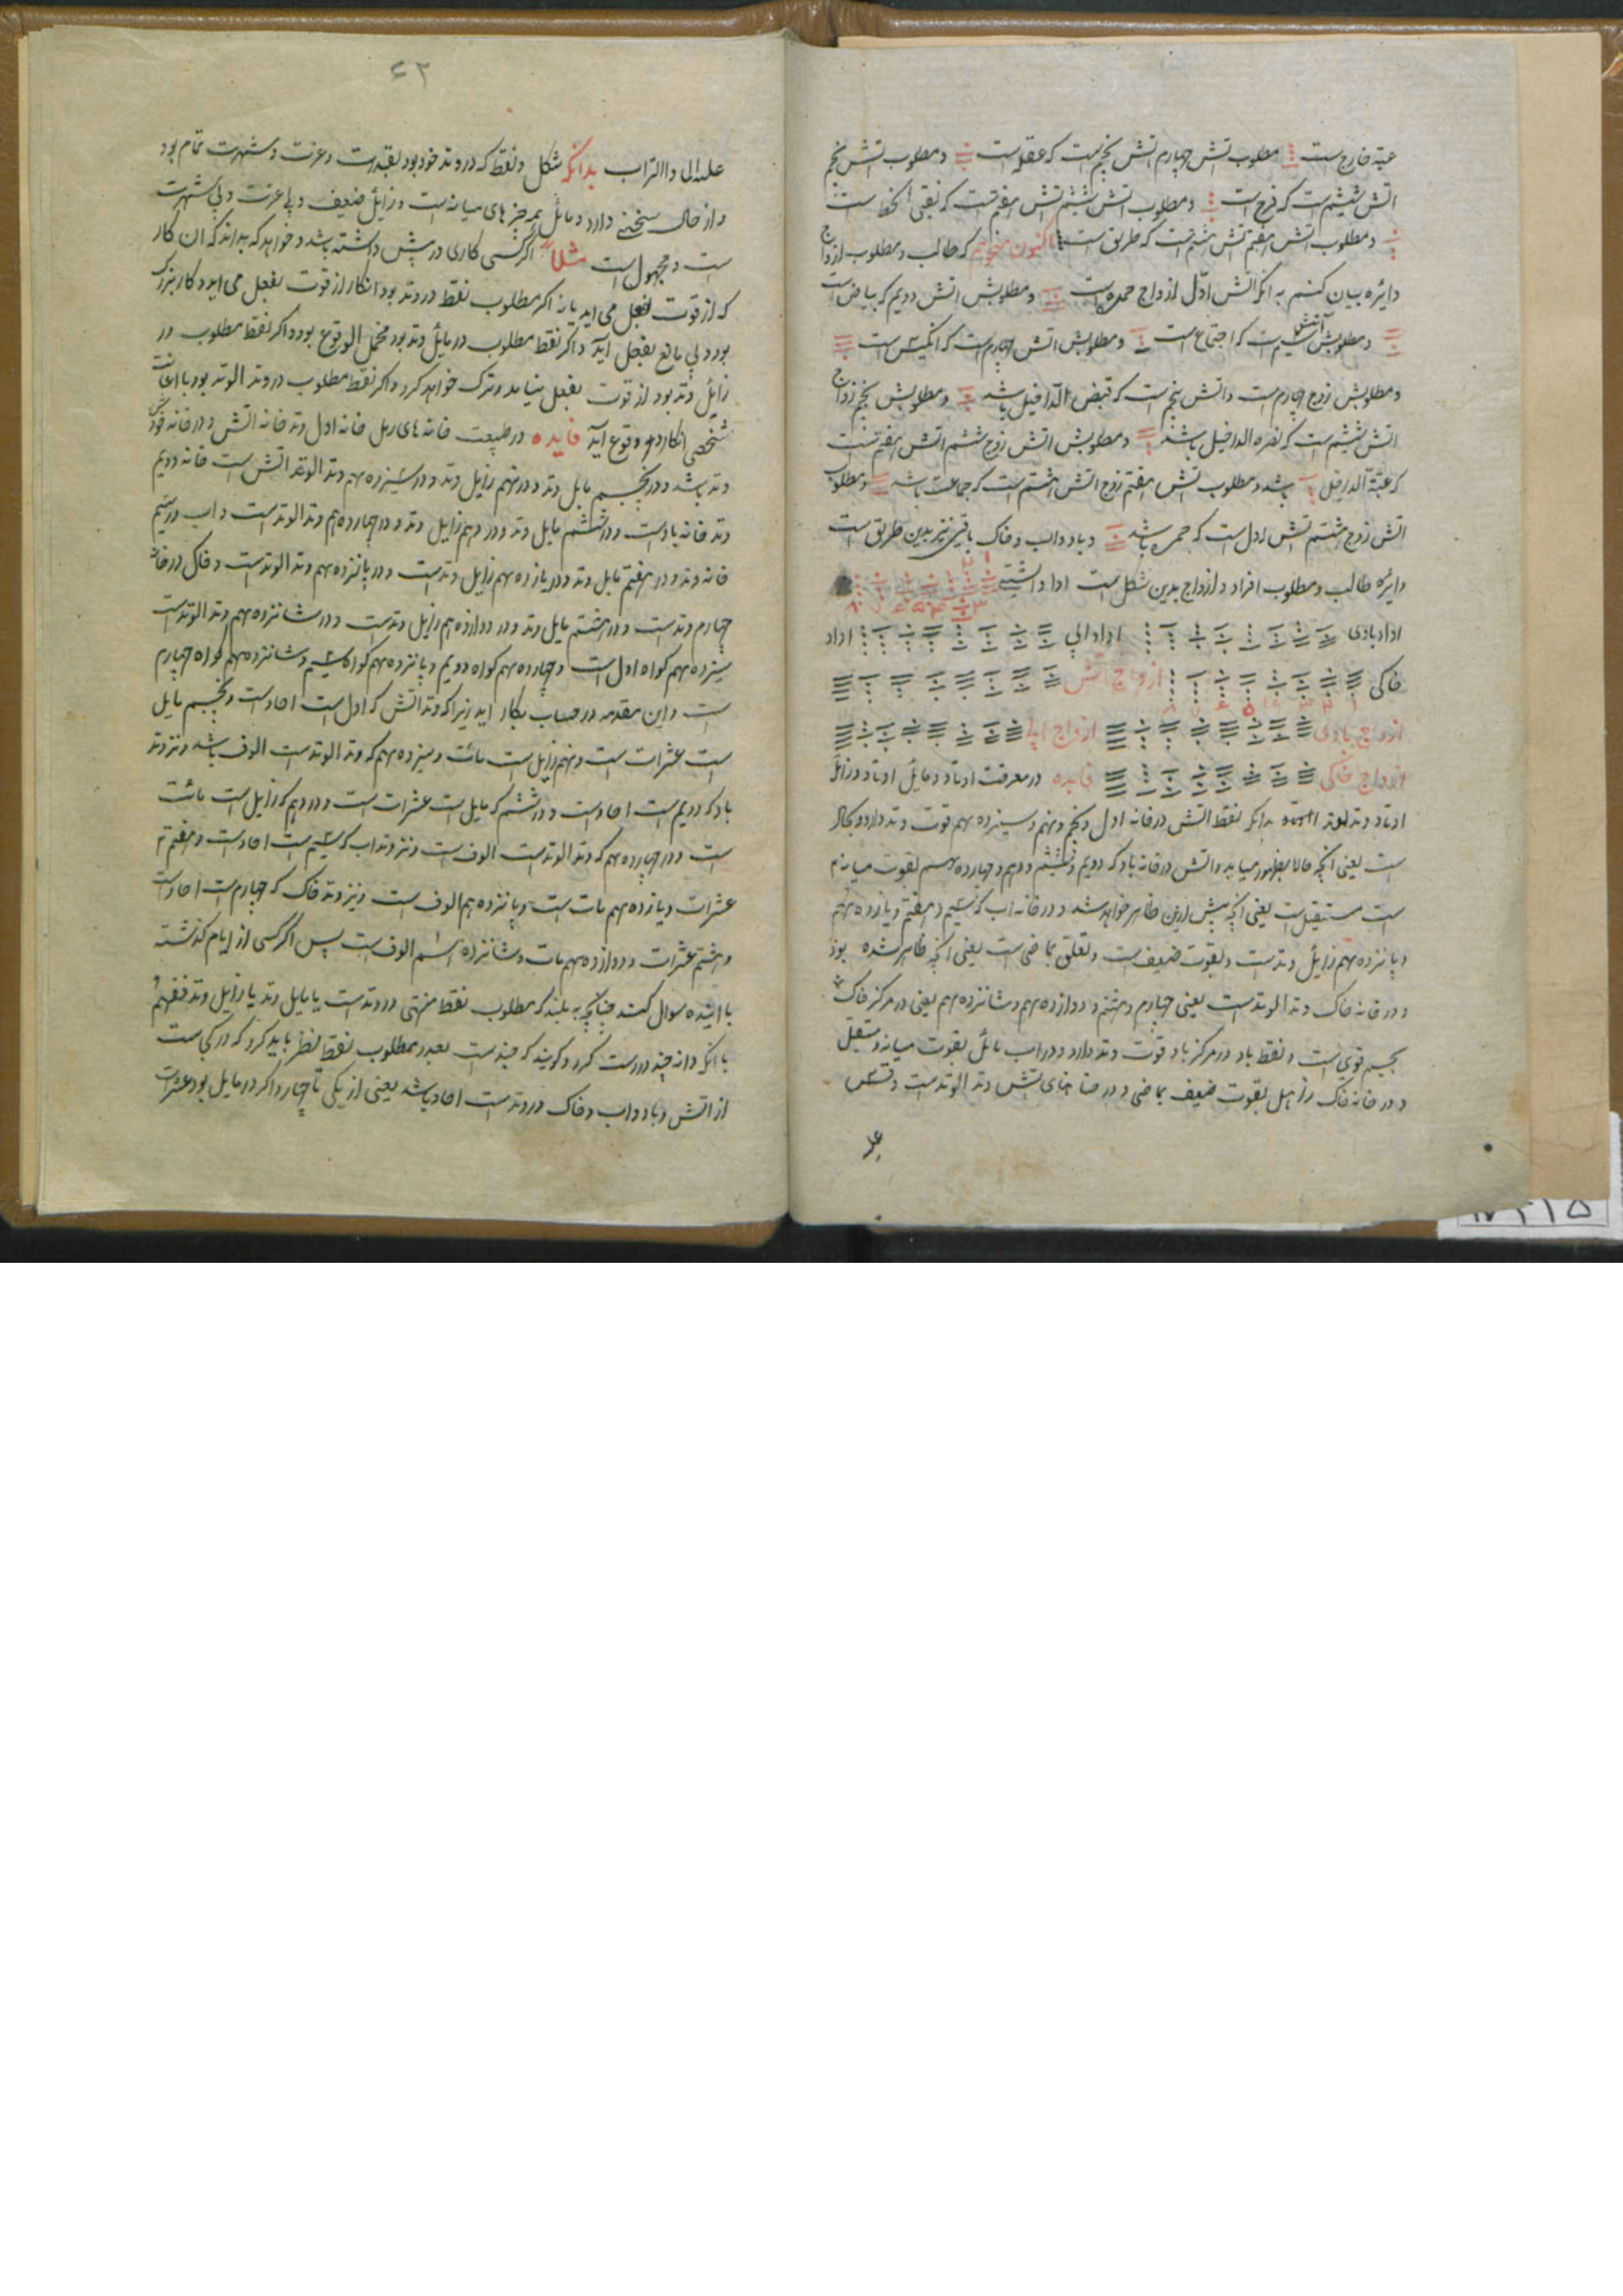 عتبه خارج است مطلوب آتش چهارم آتش پنجم است که عقله است و مطلوب آتش پنجم
آتش ششم است که فرح است و مطلوب آتش ششم آتش هفتم است که نقی الخد است
و مطلوب آتش هفتم آتش هشتم است که طریق است اکنون میخواهم که طالب و مطلوب ازواج
دایره بیان کنم بدانکه آتش اول ازواج حمره است و مطلوبش آتش دویم که بیاض است
و مطلوبش آتش سیم است که اجتماع است و مطلوبش آتش چهارم است که انکیس است
و مطلوبش زوج چهارم است و آتش پنجم است که قبض الداخل باشد و مطلوبش پنجم ازواج
آتش ششم است که نصره الداخل باشد و مطلوبش آتش زوج ششم آتش هفتم است
که عتبة الداخل باشد و مطلوب آتش هفتم زوج آتش هشتم است که جماعت باشد و مطلوب
آتش زوج هشتم آتش اول است که حمره باشد و باد و آب و خاک باقی نیز بدین طریق است
دایره طالب و مطلوب افراد و ازواج بدین شکل است
بادی ابی
خاکی ازواج آتش
ازواج بادی ازواج ابی
ازواج خاکی فایده در معرفت اوتاد و مایل اوتاد و زائل
اوتاد و تد الوتد بدانکه نقطه آتش در خانه اول و پنجم و نهم و سیزدهم قوت وتد دارد و بحال
است یعنی آنچه حالا بظهور میاید و آتش در خانه باد که دویم و ششم و دهم و چهاردهم بقوت میانه
است مستقبل است یعنی آنچه پیش ازین ظاهر خواهد شد و در خانه آب که سیم و هفتم و یازدهم
و پانزدهم زایل وتد است و بقوت ضعیف است و تعلق بماضی است یعنی آنچه ظاهر شده بود
و در خانه خاک وتد الوتد است یعنی چهارم و هشتم و دوازدهم و شانزدهم یعنی در مرکز خاک
بجسم قوی است و نقطه باد در مرکز باد قوت وتد دارد و در آب مائل بقوت میانه و مستقبل
و در خانه خاک زایل بقوت ضعیف بماضی و در خانهای آتش وتد الوتد است
بدانکه شکل و نقطه که در وتد خود بود بقدرت و عزت و شهرت تمام بود
و از حال سخن دارد و مائل بهمه چیزهای میانه است و زائل ضعیف و بی عزت و بی شهرت
است و مجهول است مثلاً اگر کسی کاری در پیش داشته باشد و خواهد که بداند که آن کار
که از قوت بفعل می آید یا نه اگر مطلوب نقطه در وتد بود آنکار از قوت بفعل می آید و کار بزرک
بود و بی مانع بفعل آید و اگر نقطه مطلوب در مائل وتد بود محتمل الوقوع بود و اگر نقطه مطلوب در
زائل وتد بود از قوت بفعل نیاید و ترک خواهد کرد و اگر نقطه مطلوب در وتد الوتد بود با اعانت
شخصی آنکار در وقوع آید فایده در طبیعت خانه های رمل خانه اول وتد خانه آتش و در خانه خود
وتد باشد و در پنجم مایل وتد و در نهم زایل وتد و در سیزدهم وتد الوتد آتش است خانه دویم
وتد خانه باد است و در ششم مایل وتد و در دهم زایل وتد و در چهاردهم وتد الوتد است و آب در سیم
خانه وتد و در هفتم مایل وتد و در یازدهم زایل وتد است و در پانزدهم وتد الوتد است و خاک در خانه
چهارم وتد است و در هشتم مایل وتد و در دوازدهم زایل وتد است و در شانزدهم وتد الوتد است
سیزدهم کواه اول است و چهاردهم کواه دویم و پانزدهم کواه سیم و شانزدهم کواه چهارم
است و این مقدمه در حساب بکار آید زیرا که وتد آتش که اول است احاد است و پنجم مایل
است عشرات است و نهم زایل است مآت و سیزدهم که وتد الوتد است الوف باشد و نزد وتد
باد که دویم است احاد است و در ششم که مایل است عشرات است و در دهم که زایل است مائت
است و در چهاردهم که وتد الوتد است الوف است و نزد وتد آب که سیم است احاد است و هفتم
عشرات و یازدهم مات است و پانزدهم الوف است و نیز وتد خاک که چهارم است احاد است
و هشتم عشرات و دوازدهم مات و شانزدهم الوف است پس اگر کسی از ایام کذشته
یا آینده سوال کند چنانچه به بیند که مطلوب نقطه منتهی در وتد است یا مایل وتد یا زایل وتد
یا آنکه دانه چند در دست کیرد و کویند که چند است بعد در مطلوب نقطه نظر باید کرد که در کجاست
از آتش و باد و آب و خاک در وتد است احاد باشد یعنی از یکی تا چهار و اگر در مایل بود عشرات